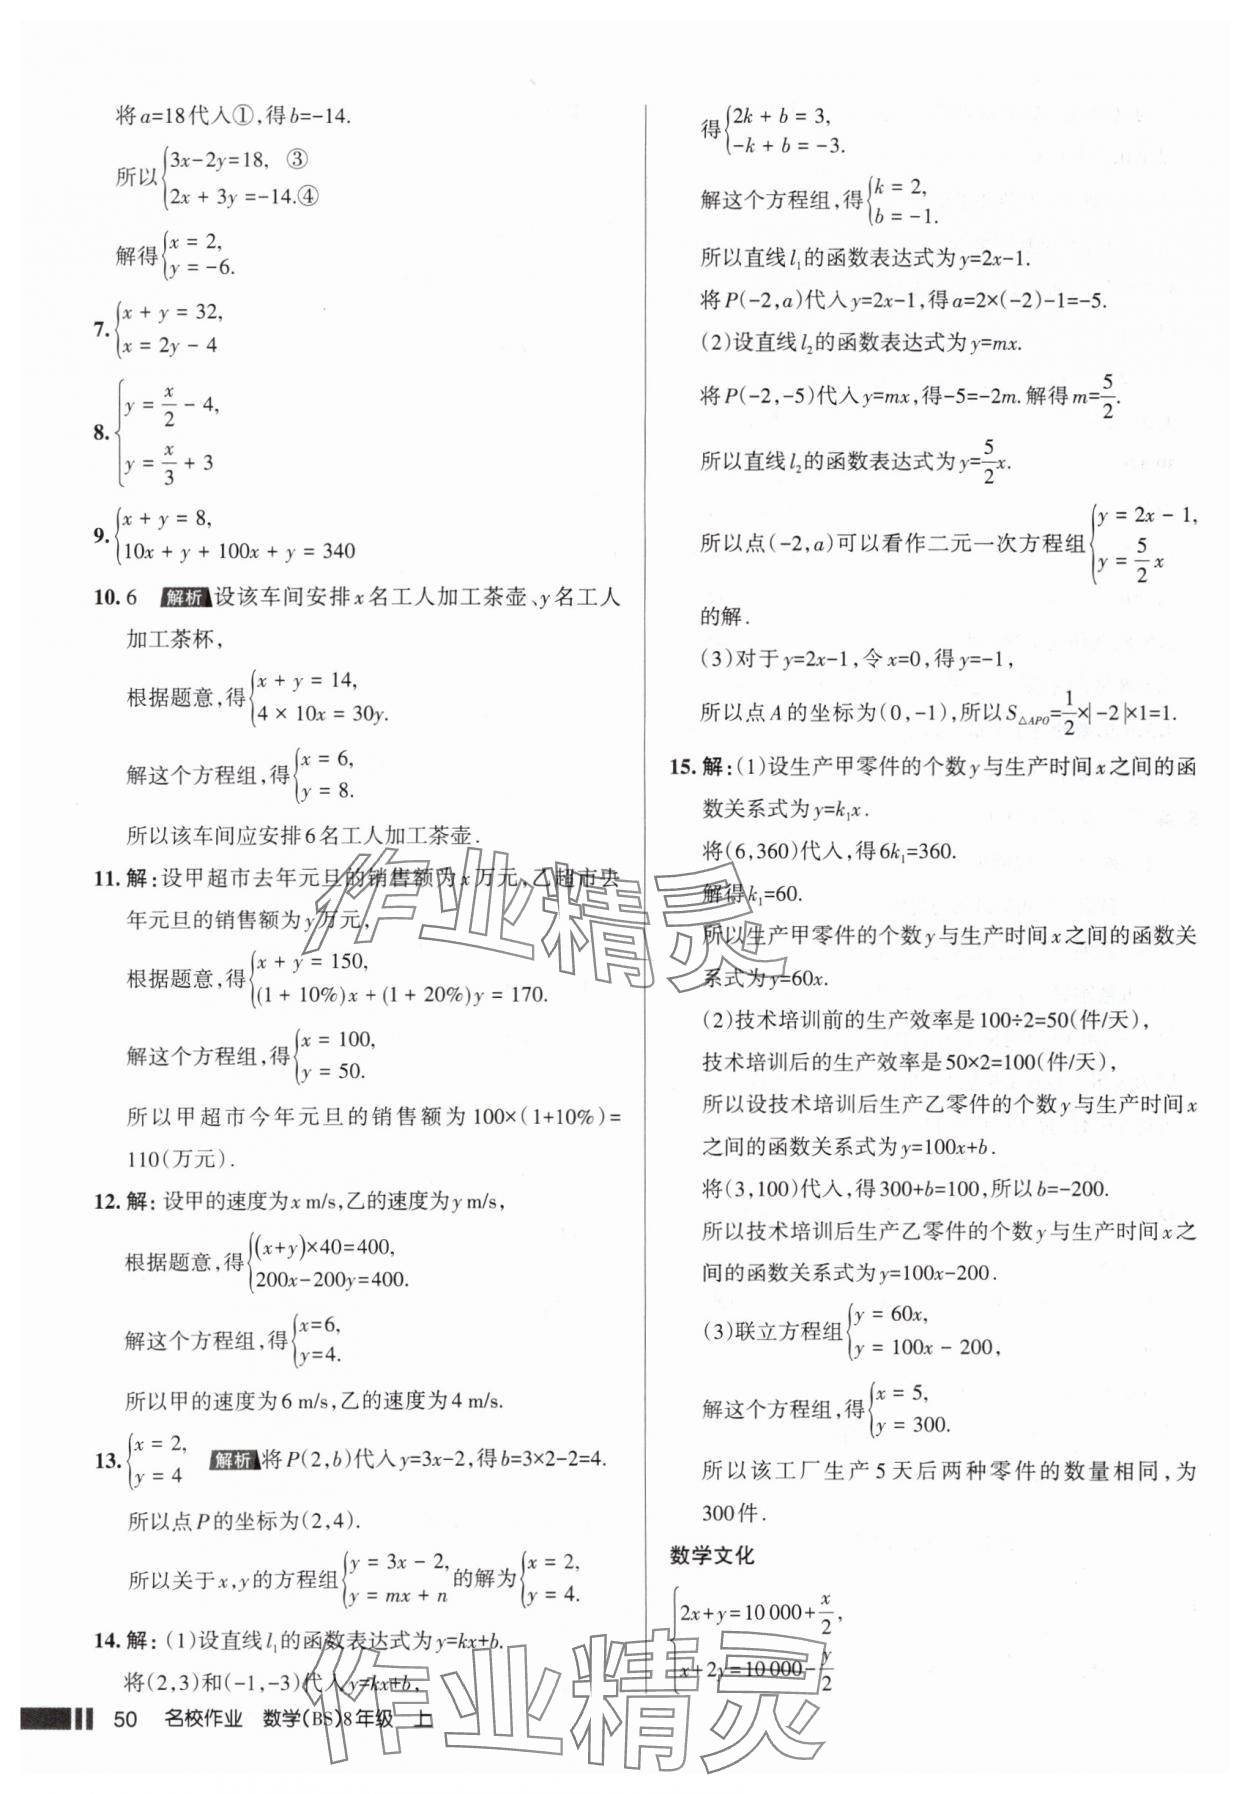 将a=18代入①,得b=-14.
所以{3x-2y=18, ③
2x + 3y =-14.④
解得{x = 2,
y = -6.
7. {x + y = 32,
x = 2y - 4
8. {y = x/2 - 4,
y = x/3 + 3
9. {x + y = 8,
10x + y + 100x + y = 340
10. 6 解析 设该车间安排x名工人加工茶壶、y名工人
加工茶杯,
根据题意,得{x + y = 14,
4 × 10x = 30y.
解这个方程组,得{x = 6,
y = 8.
所以该车间应安排6名工人加工茶壶.
11. 解:设甲超市去年元旦的销售额为x万元,乙超市去
年元旦的销售额为y万元,
根据题意,得{x + y = 150,
(1 + 10%)x + (1 + 20%)y = 170.
解这个方程组,得{x = 100,
y = 50.
所以甲超市今年元旦的销售额为100×(1+10%)=
110(万元).
12. 解:设甲的速度为x m/s,乙的速度为y m/s,
根据题意,得{(x+y)×40=400,
200x-200y=400.
解这个方程组,得{x=6,
y=4.
所以甲的速度为6 m/s,乙的速度为4 m/s.
13. {x = 2,
y = 4 解析 将P(2,b)代入y=3x-2,得b=3×2-2=4.
所以点P的坐标为(2,4).
所以关于x,y的方程组{y = 3x - 2,
y = mx + n 的解为{x = 2,
y = 4.
14. 解:(1)设直线l₁的函数表达式为y=kx+b.
将(2,3)和(-1,-3)代入y=kx+b,
50 名校作业 数学(BS)8年级 上
得{2k + b = 3,
-k + b = -3.
解这个方程组,得{k = 2,
b = -1.
所以直线l₁的函数表达式为y=2x-1.
将P(-2,a)代入y=2x-1,得a=2×(-2)-1=-5.
(2)设直线l₂的函数表达式为y=mx.
将P(-2,-5)代入y=mx,得-5=-2m.解得m=5/2.
所以直线l₂的函数表达式为y=5/2x.
所以点(-2,a)可以看作二元一次方程组{y = 2x - 1,
y = 5/2 x
的解.
(3)对于y=2x-1,令x=0,得y=-1,
所以点A的坐标为(0,-1),所以S△APO=1/2×|-2|×1=1.
15. 解:(1)设生产甲零件的个数y与生产时间x之间的函
数关系式为y=k₁x.
将(6,360)代入,得6k₁=360.
解得k₁=60.
所以生产甲零件的个数y与生产时间x之间的函数关
系式为y=60x.
(2)技术培训前的生产效率是100÷2=50(件/天),
技术培训后的生产效率是50×2=100(件/天),
所以设技术培训后生产乙零件的个数y与生产时间x
之间的函数关系式为y=100x+b.
将(3,100)代入,得300+b=100,所以b=-200.
所以技术培训后生产乙零件的个数y与生产时间x之
间的函数关系式为y=100x-200.
(3)联立方程组{y = 60x,
y = 100x - 200,
解这个方程组,得{x = 5,
y = 300.
所以该工厂生产5天后两种零件的数量相同,为
300件.
数学文化
{2x+y=10 000+x/2,
x+2y=10 000-y/2
作业精灵
作业精灵